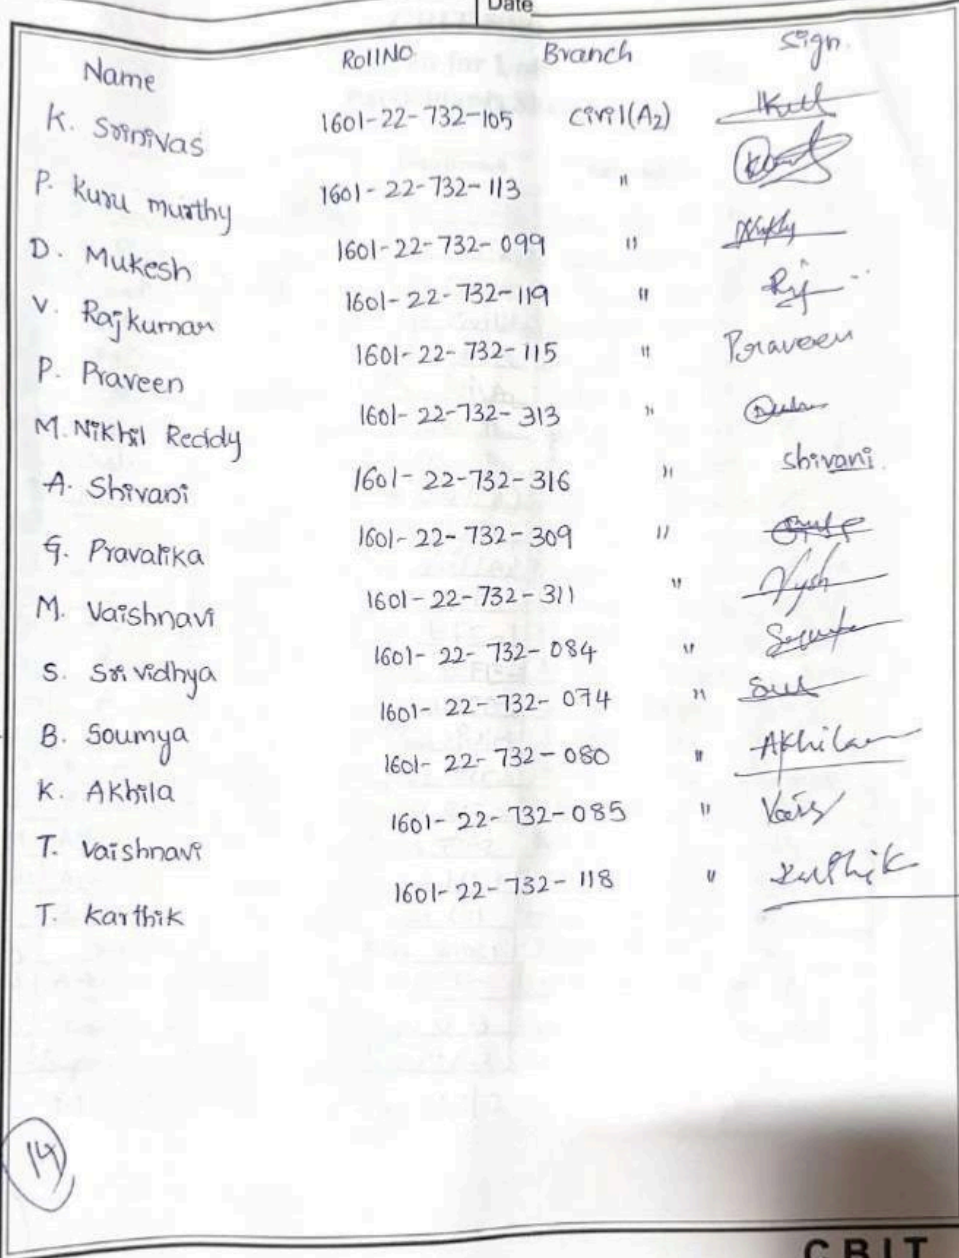 Date
Name RollNO Branch Sign.
K. Srinivas 1601-22-732-105 Civil(A2)
P. Kuru murthy 1601-22-732-113 "
D. Mukesh 1601-22-732-099 "
V. Rajkumar 1601-22-732-119 "
P. Praveen 1601-22-732-115 " Praveen
M. Nikhil Reddy 1601-22-732-313 "
A. Shivani 1601-22-732-316 " Shivani
G. Pravalika 1601-22-732-309 "
M. Vaishnavi 1601-22-732-311 "
S. Sri vidhya 1601-22-732-084 "
B. Soumya 1601-22-732-074 "
K. Akhila 1601-22-732-080 " Akhila
T. Vaishnavi 1601-22-732-085 "
T. Karthik 1601-22-732-118 " Karthik
14
CBIT